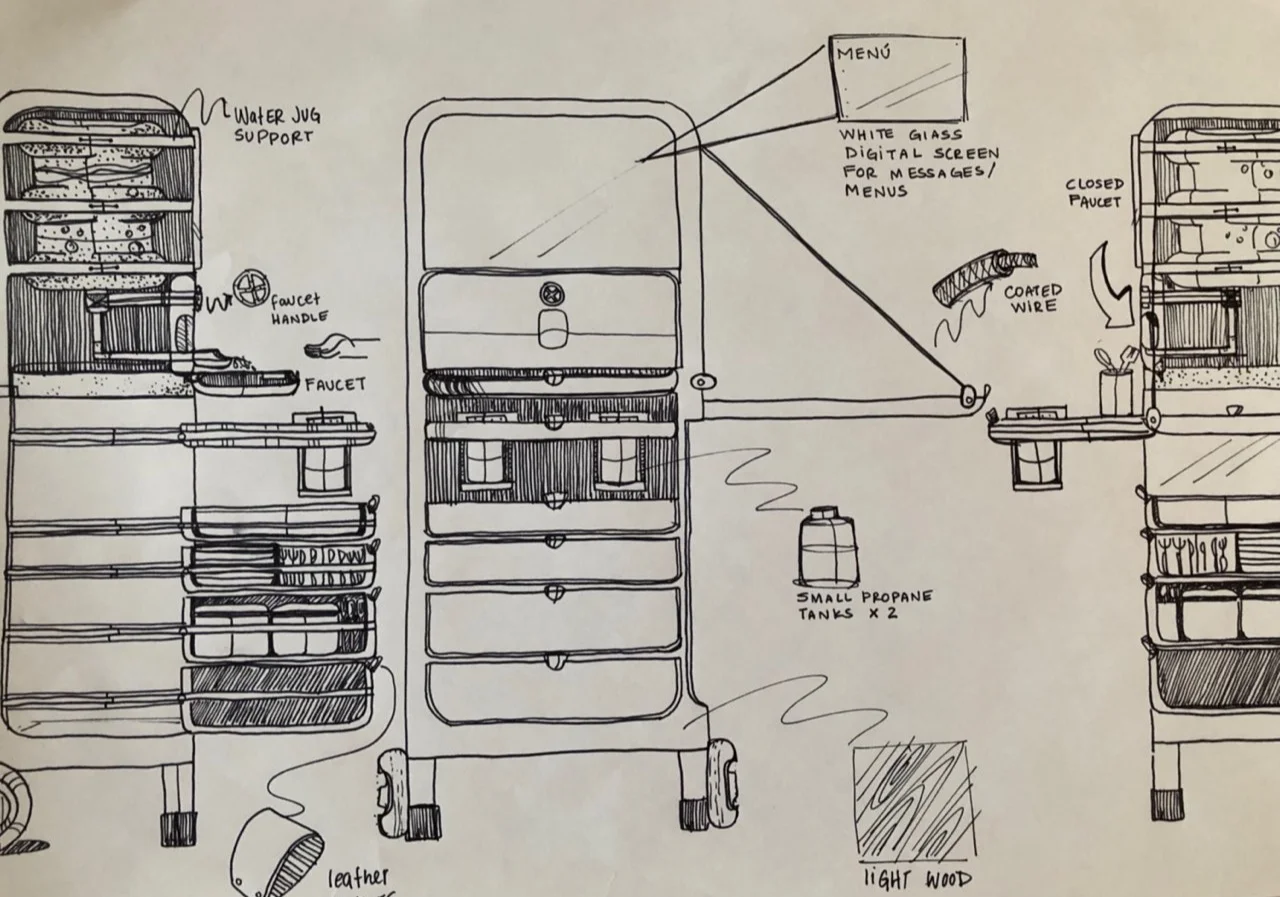 WATER JUG
SUPPORT
MENÚ
WHITE GLASS
DIGITAL SCREEN
FOR MESSAGES/
MENUS
CLOSED
FAUCET
faucet
HANDLE
COATED
WIRE
FAUCET
SMALL PROPANE
TANKS X 2
leather
lIGHT WOOD